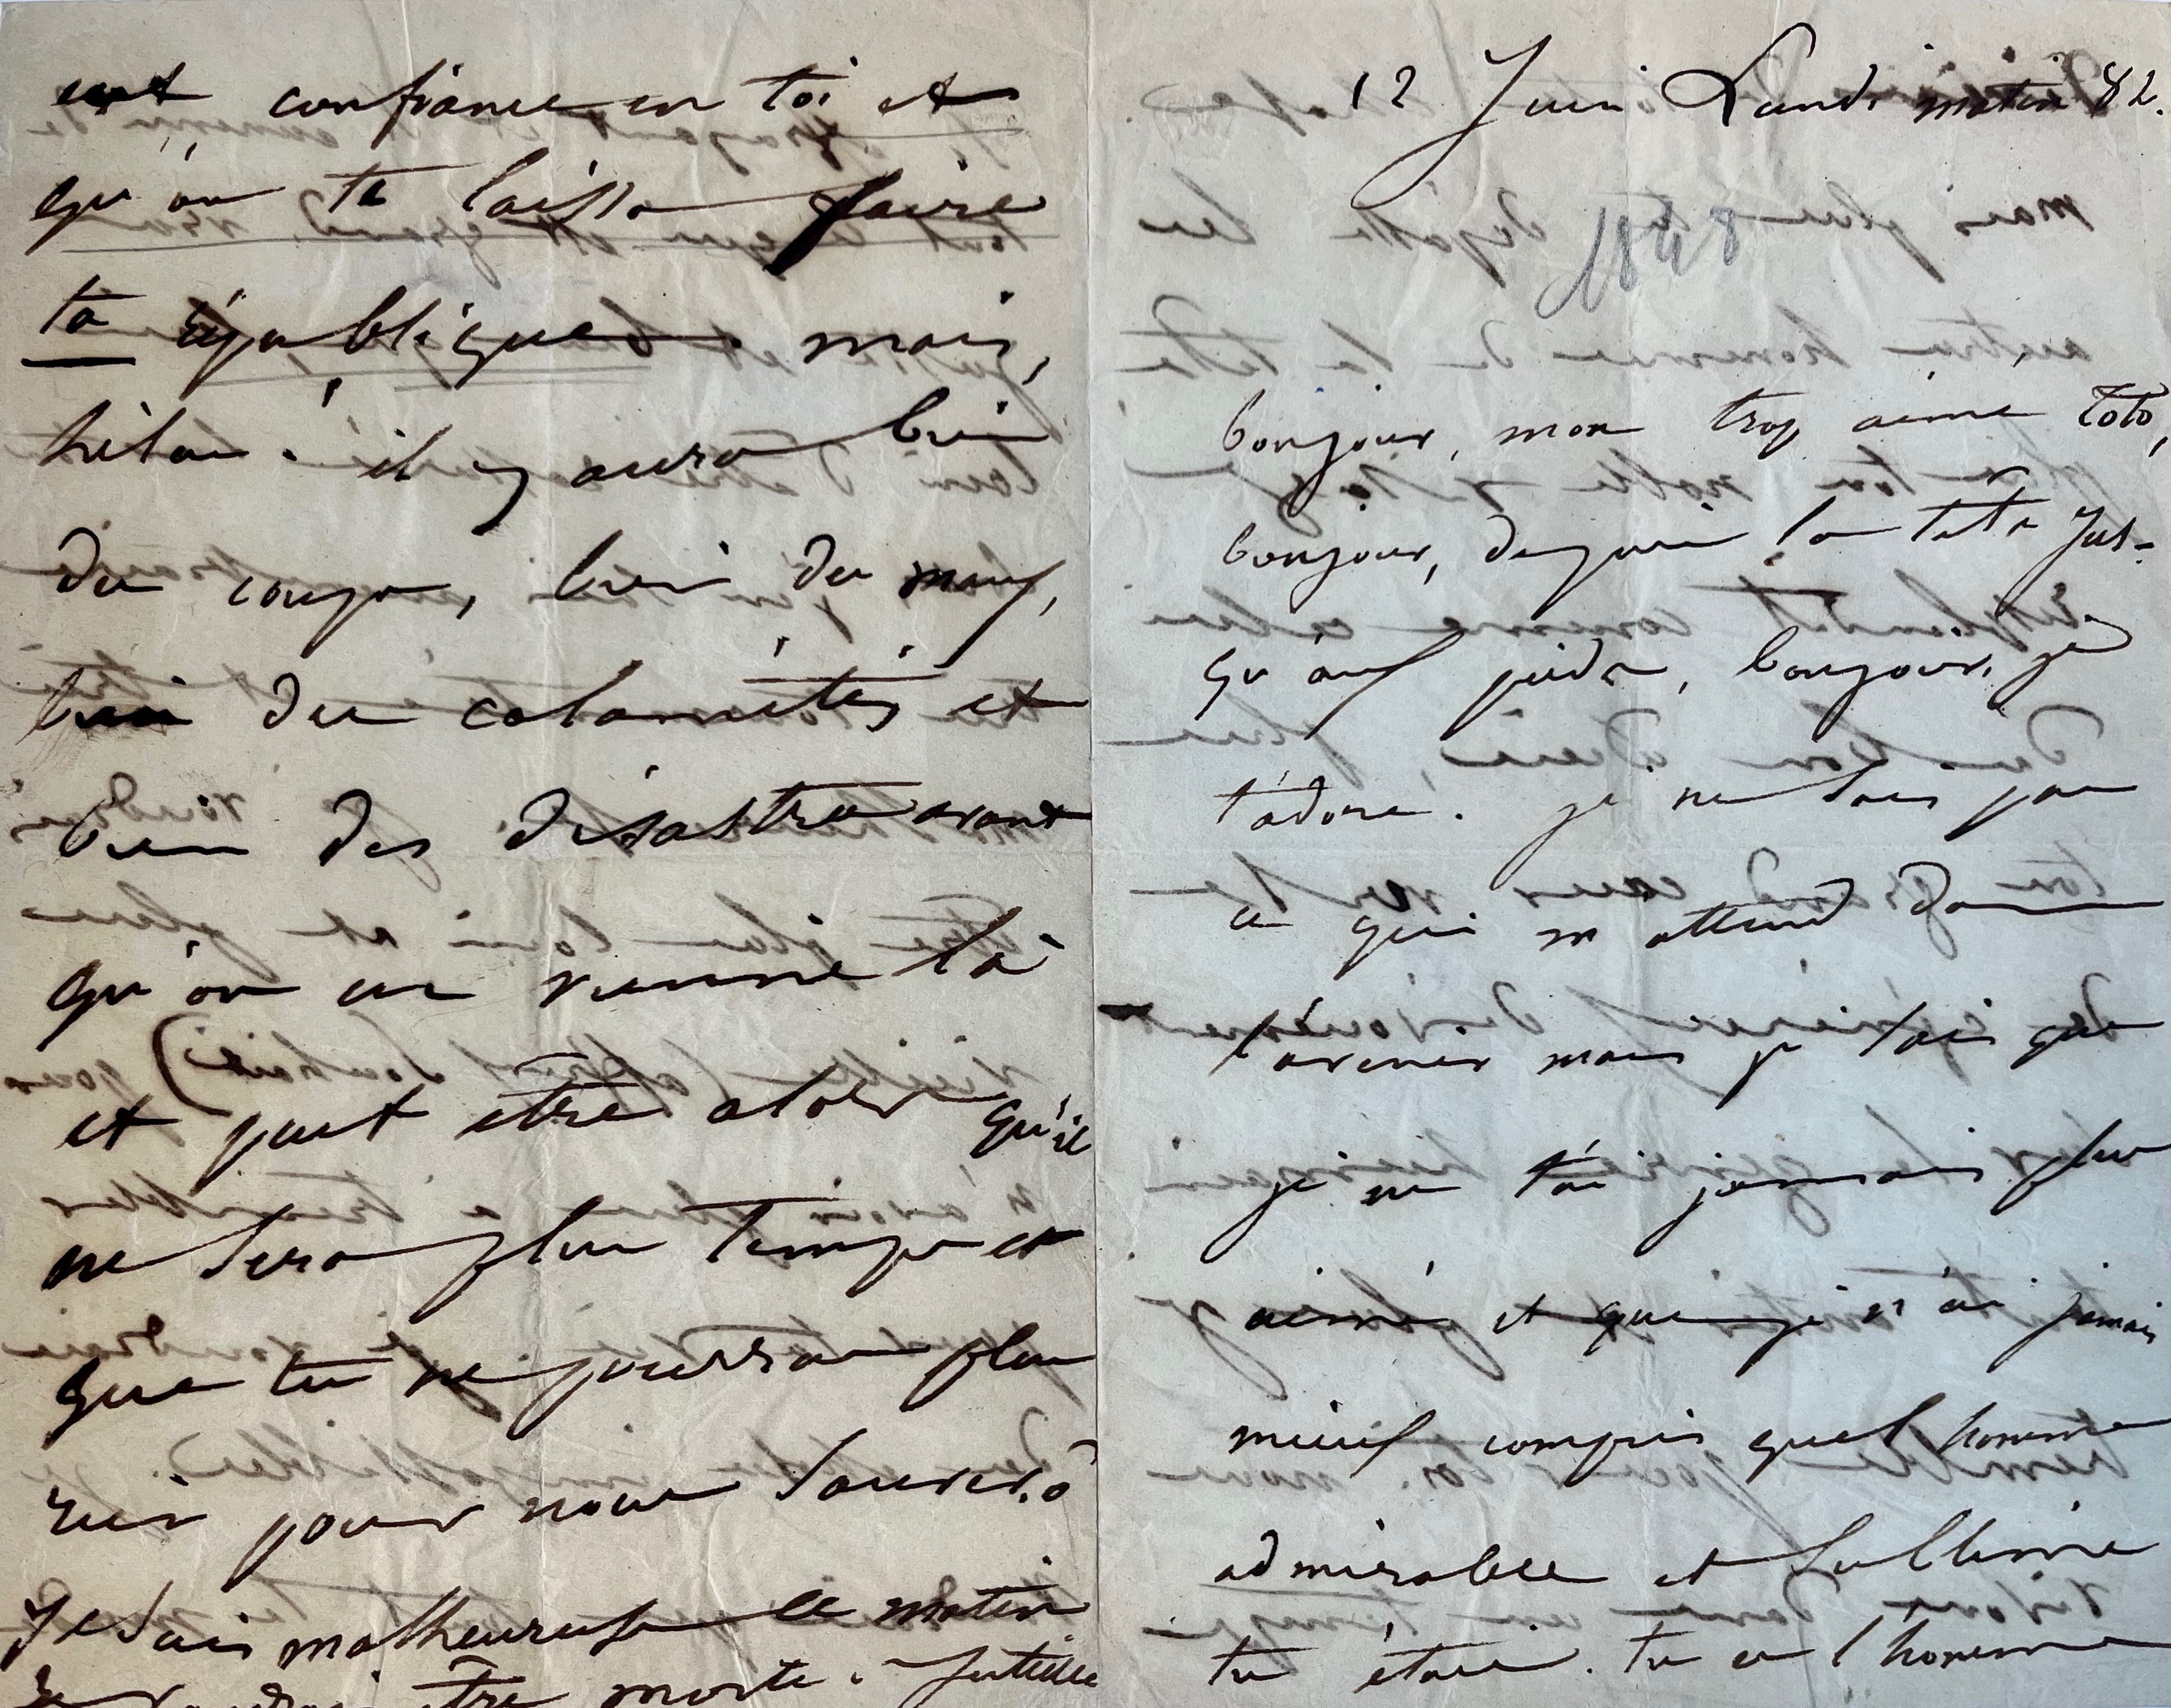 12 Juin Lundi matin 82.
1848
bonjour, mon trop aimé Toto,
bonjour, depuis la tête jus-
qu'aux pieds, bonjour, je
t'adore. je ne sais pas
ce qui m'attend dans
l'avenir mais je sais que
je ne t'ai jamais plus
aimé et que je n'ai jamais
mieux compris quel homme
admirable et sublime
tu étais. tu es l'homme
confiance en toi et
qu'on te laisse faire
ta république. mais,
hélas ! il y aura bien
des coups, bien des maux,
bien des calamités et
bien des désastres avant
qu'on en vienne là
et peut être alors qu'il
ne sera plus temps et
que tu ne pourras plus
rien pour nous sauver. ô
Je suis malheureuse ce matin
Je voudrais être morte. Juliette